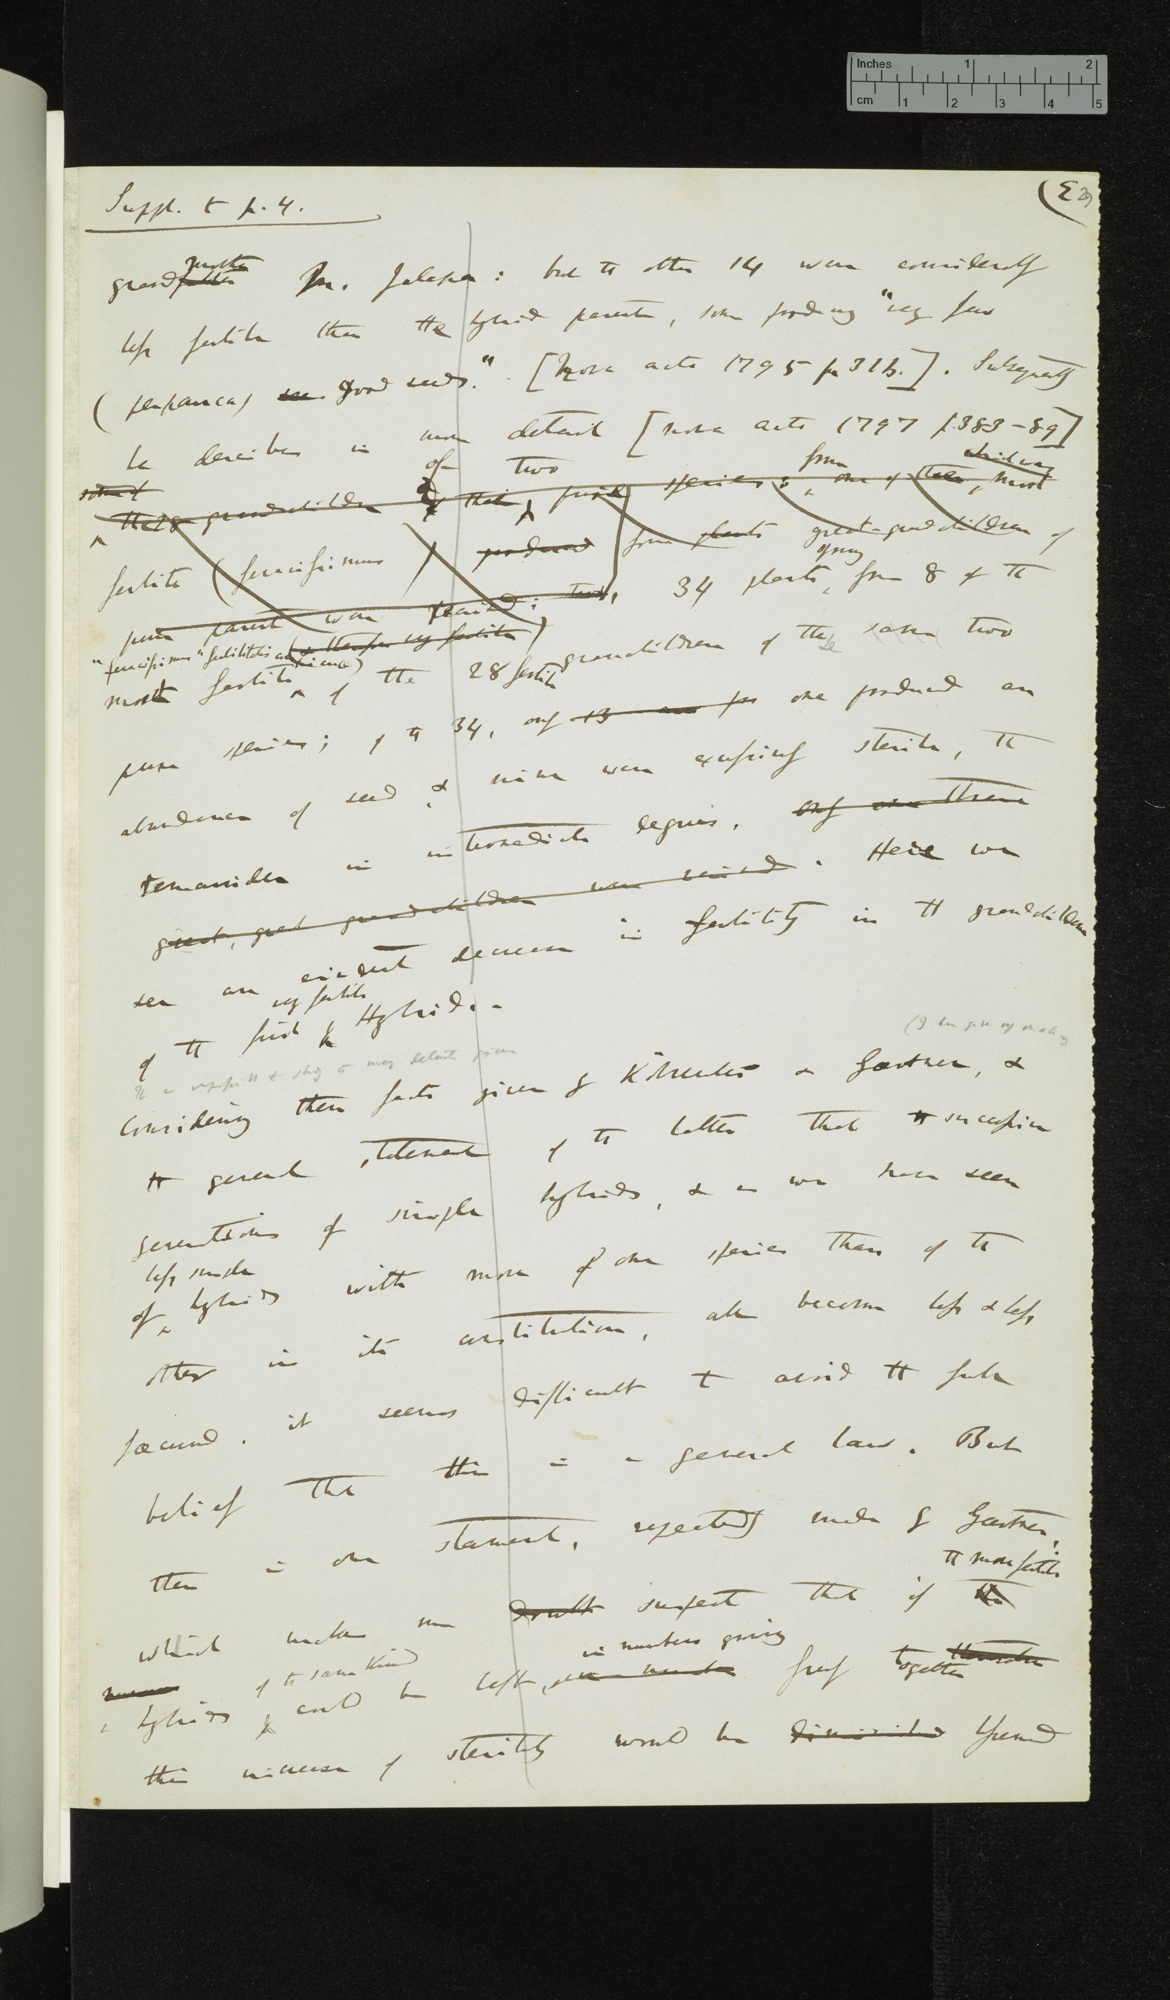 Inches 1 2
cm 1 2 3 4 5
(E 2)
Suppl. to p. 4.
mother
grandfather M. Jalapa: but the other 14 were considerably
less fertile than the hybrid parent, some producing "very few
(perpauca) good seeds." [Nova acta 1795 p 316.]. Subsequently
he describes in more detail [nova acta 1797 p. 383-89]
of two from which was
some of
these grandchildren of their pure species: one of them, most
fertile (feracissimus) produced from plants great-grandchildren of
pure parent were raised; 34 plants, from 8 of the
"feracissimus"
most fertile of the 28 fertile grandchildren of these same two
pure species; of the 34, only one produced an
abundance of seed, & nine were excessively sterile, the
remainder in intermediate degrees. only three
great, great grandchildren were raised. Here we
see an evident decrease in fertility in the grandchildren
very fertile
of the first Hybrid.
Considering these facts given by Kölreuter & Gærtner, &
the general statement of the latter that the successive
generations of simple hybrids, & as we have seen
less simple
of hybrids with more of one species than of the
other in its constitution, all become less & less
fecund, it seems difficult to avoid the full
belief that this is a general law. But
there is one statement, repeatedly made by Gærtner,
the more fertile
which makes me doubt suspect that if the
of the same kind in numbers growing
hybrids could be left, freely together
this increase of sterility would be diminished found